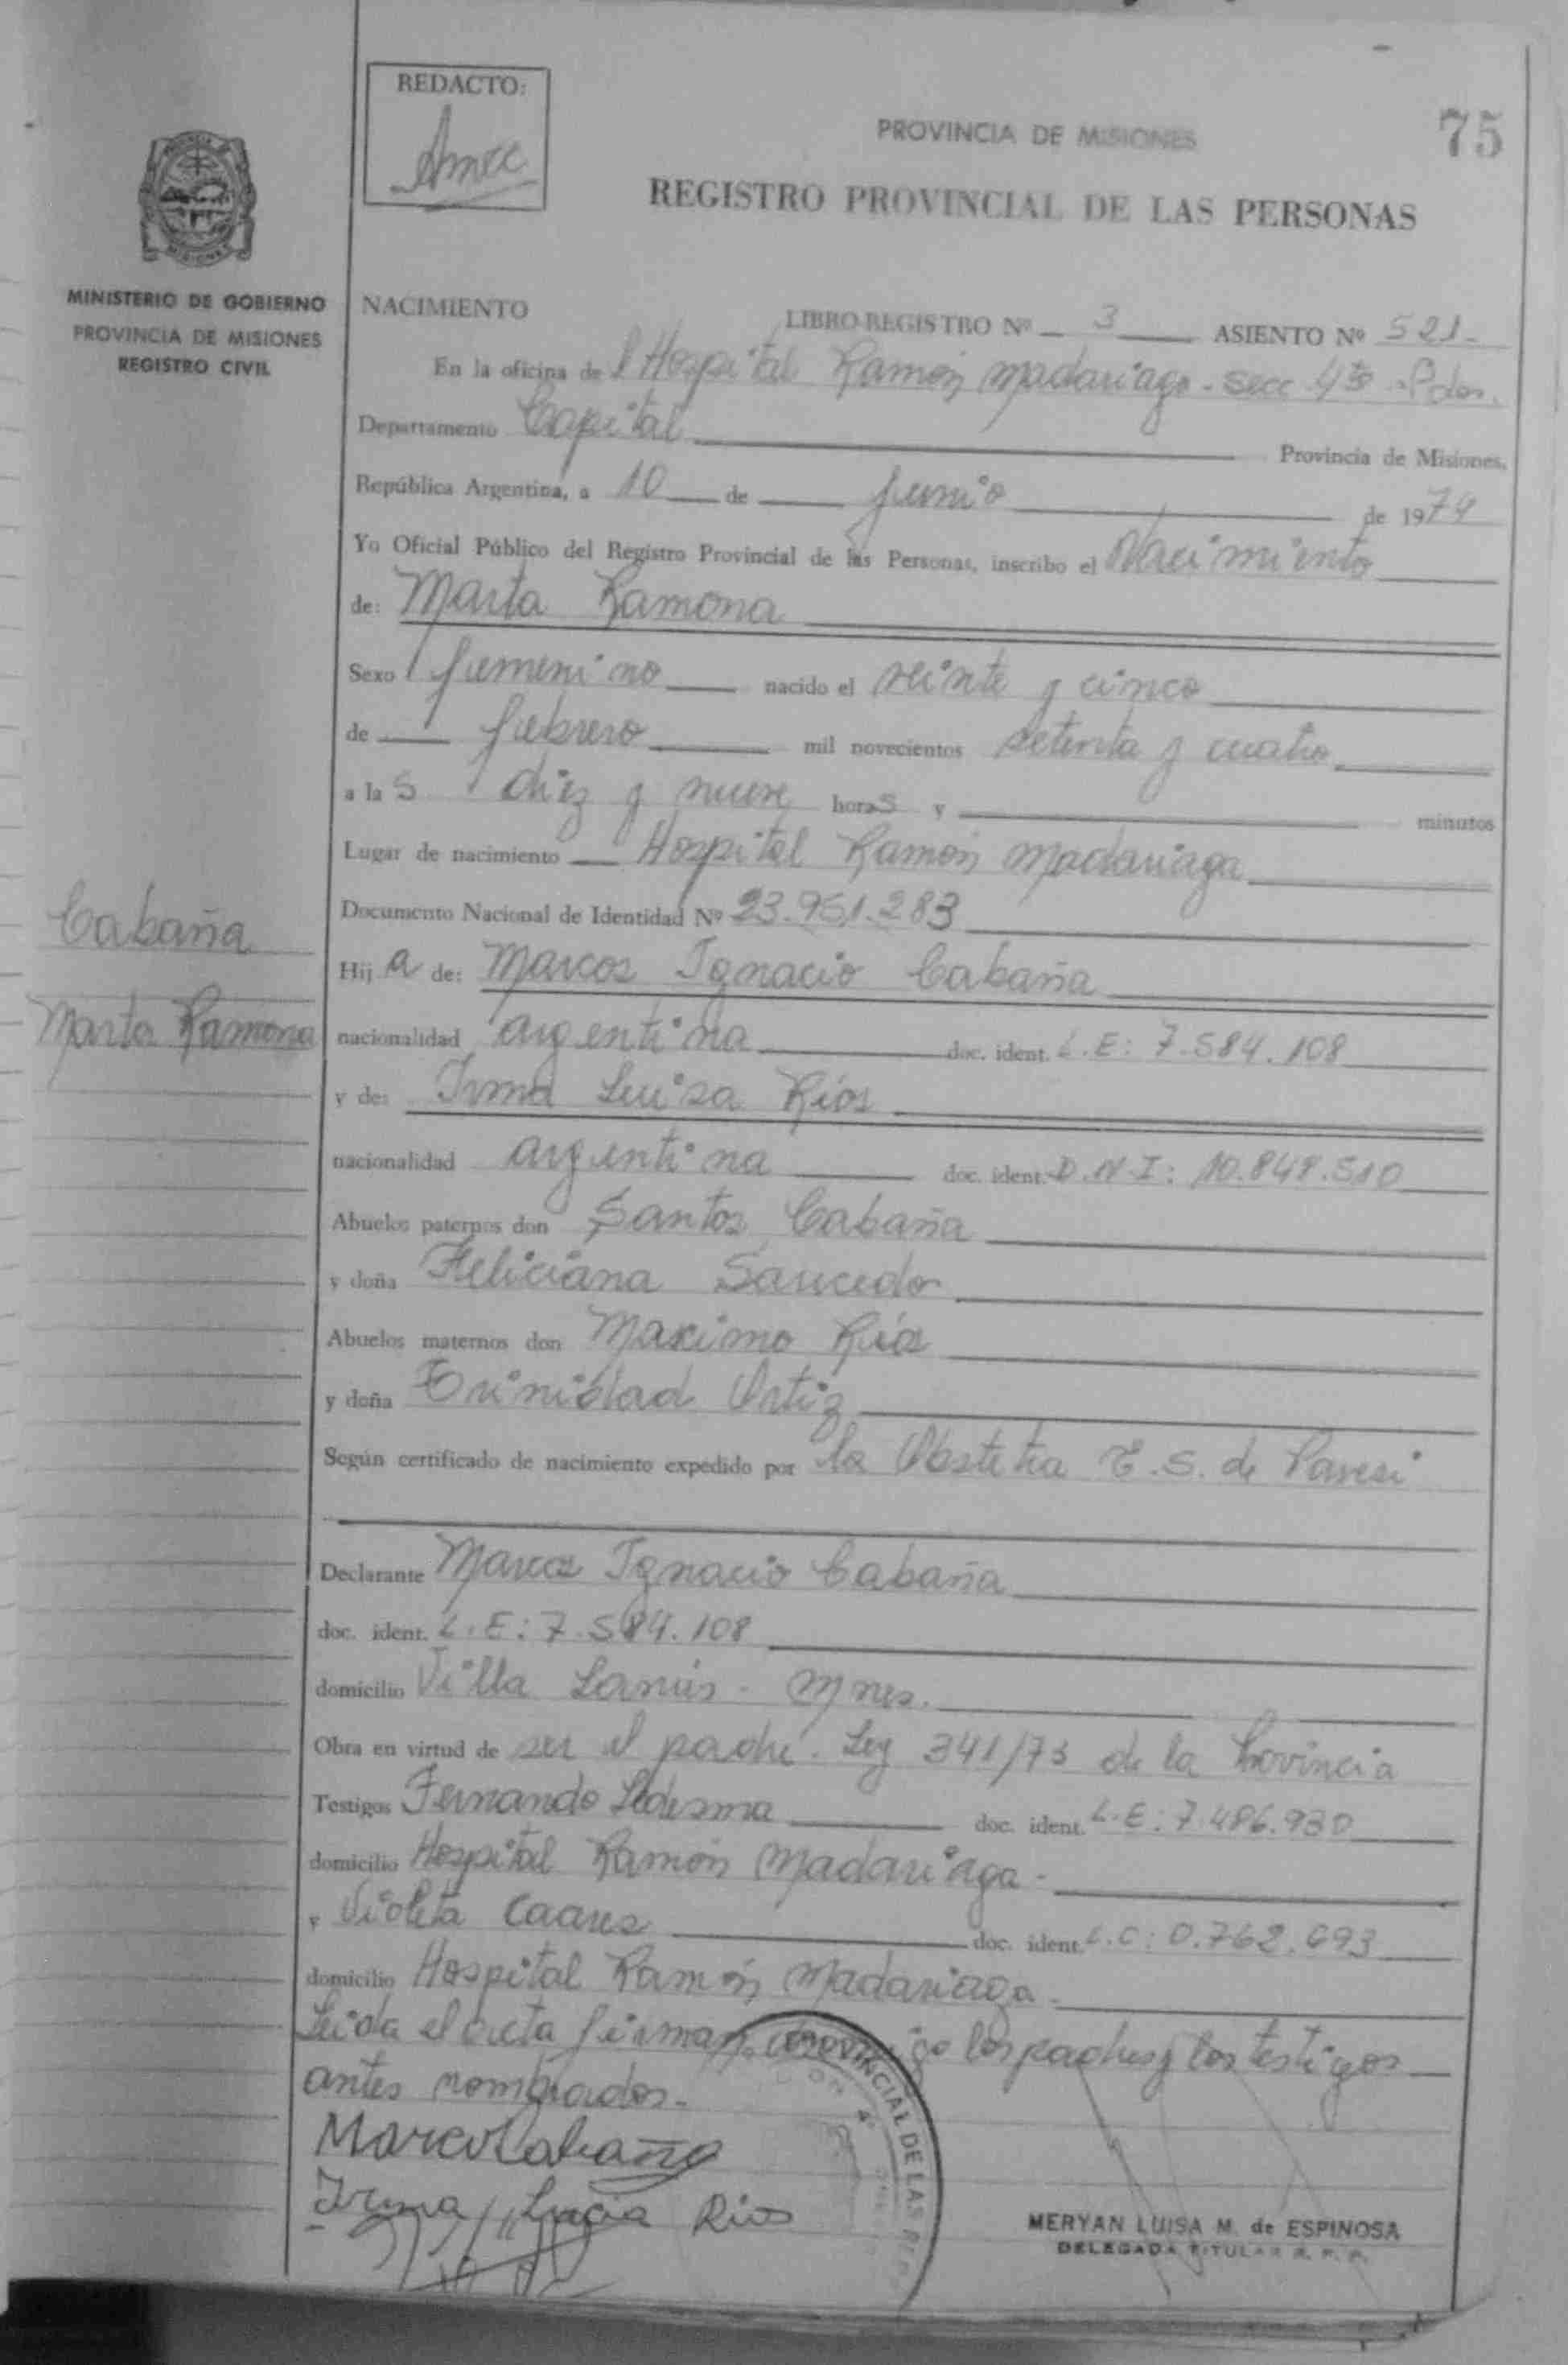 REDACTO:
PROVINCIA DE MISIONES
75
REGISTRO PROVINCIAL DE LAS PERSONAS
MISIONES
MINISTERIO DE GOBIERNO
PROVINCIA DE MISIONES
REGISTRO CIVIL
NACIMIENTO LIBRO-REGISTRO Nº 3 ASIENTO Nº 521-
En la oficina del Hospital Ramón Madariaga - Secc 4ta - Pdas.
Departamento Capital Provincia de Misiones,
República Argentina, a 10 de junio de 1974
Yo Oficial Público del Registro Provincial de las Personas, inscribo el Nacimiento
de: Marta Ramona
Sexo femenino nacido el veinte y cinco
de febrero mil novecientos setenta y cuatro
a la s diez y nueve horas y minutos
Lugar de nacimiento Hospital Ramón Madariaga
Documento Nacional de Identidad Nº 23.951.283
Cabaña
Marta Ramona
Hij a de: Marcos Ignacio Cabaña
nacionalidad argentina doc. ident. L.E: 7.584.108
y de: Irma Luisa Ríos
nacionalidad argentina doc. ident. D.N.I: 10.848.510
Abuelos paternos don Santos Cabaña
y doña Feliciana Saucedo
Abuelos maternos don Maximo Ríos
y doña Trinidad Ortiz
Según certificado de nacimiento expedido por la Obstetra E.S. de Pavesi
Declarante Marcos Ignacio Cabaña
doc. ident. L.E: 7.584.108
domicilio Villa Lanús - Mnes.
Obra en virtud de ser el padre. Ley 341/73 de la Provincia
Testigos Fernando Ledesma doc. ident. L.E: 7.486.930
domicilio Hospital Ramón Madariaga -
y Violeta doc. ident. L.C: 0.762.693
domicilio Hospital Ramón Madariaga -
Leida el acta firman los padres y los testigos
antes nombrados.-
PROVINCIAL DE LAS
Marcos Cabaña
Irma Lucia Rios
MERYAN LUISA M. de ESPINOSA
DELEGADA TITULAR R. P. P.